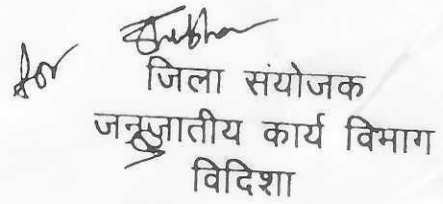 for
जिला संयोजक
जनजातीय कार्य विभाग
विदिशा